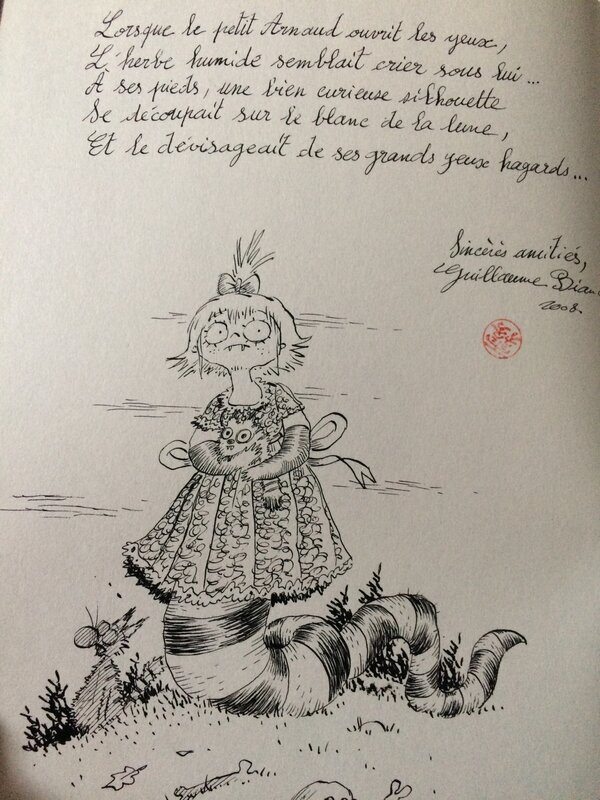 Lorsque le petit Arnaud ouvrit les yeux,
L'herbe humide semblait crier sous lui...
A ses pieds, une bien curieuse silhouette
Se découpait sur le blanc de la lune,
Et le dévisageait de ses grands yeux hagards...
Sincères amitiés,
Guillaume Bian
2008.